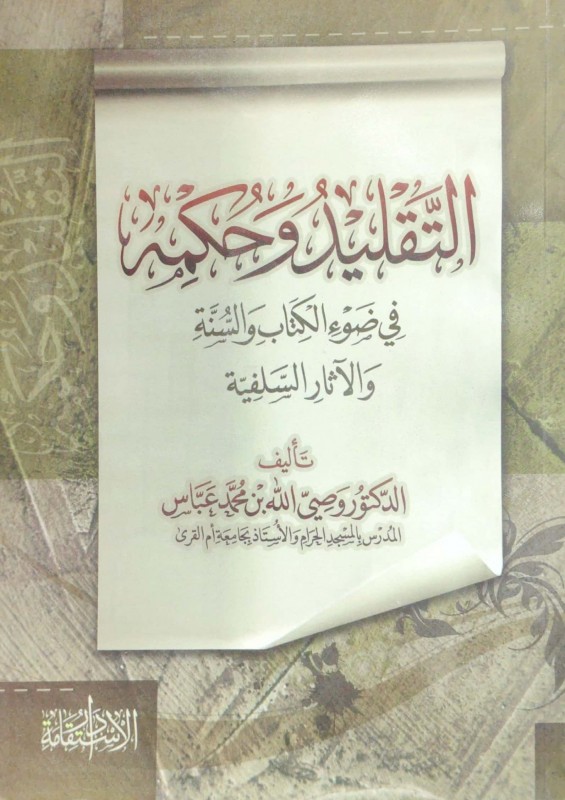 التَّقْلِيدُ وَحُكمِهِ
فِي ضَوْءِ الكِتَابِ وَالسُّنَّةِ
وَالآثارِ السَّلَفِيَّة
تَأليف
الدكتُور وَصِيّ الله بْن مُحمَّد عَبَّاس
المدُرّس بالمسْجِد الحَرام وَالأسُتَاذ بجَامِعَة أم القرىٰ
دار الاستقامة